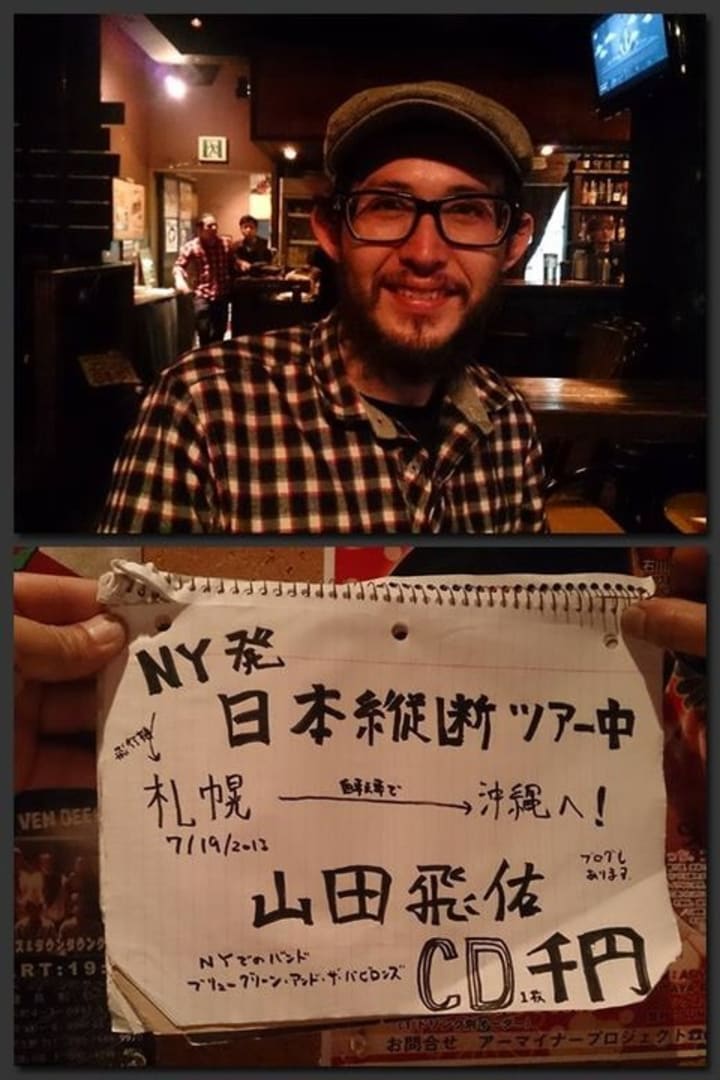 NY発
日本縦断ツアー中
飛行機
札幌
自転車で
沖縄へ!
7/19/2013
山田飛佑
ブログも
あります
NYでのバンド
ブリューグリーン・アンド・ザ・バビロンズ
CD 1枚 千円
VEN DEE
ス&ダウンタウン
ART:19:
お問合せ アーマイナープロジェクト